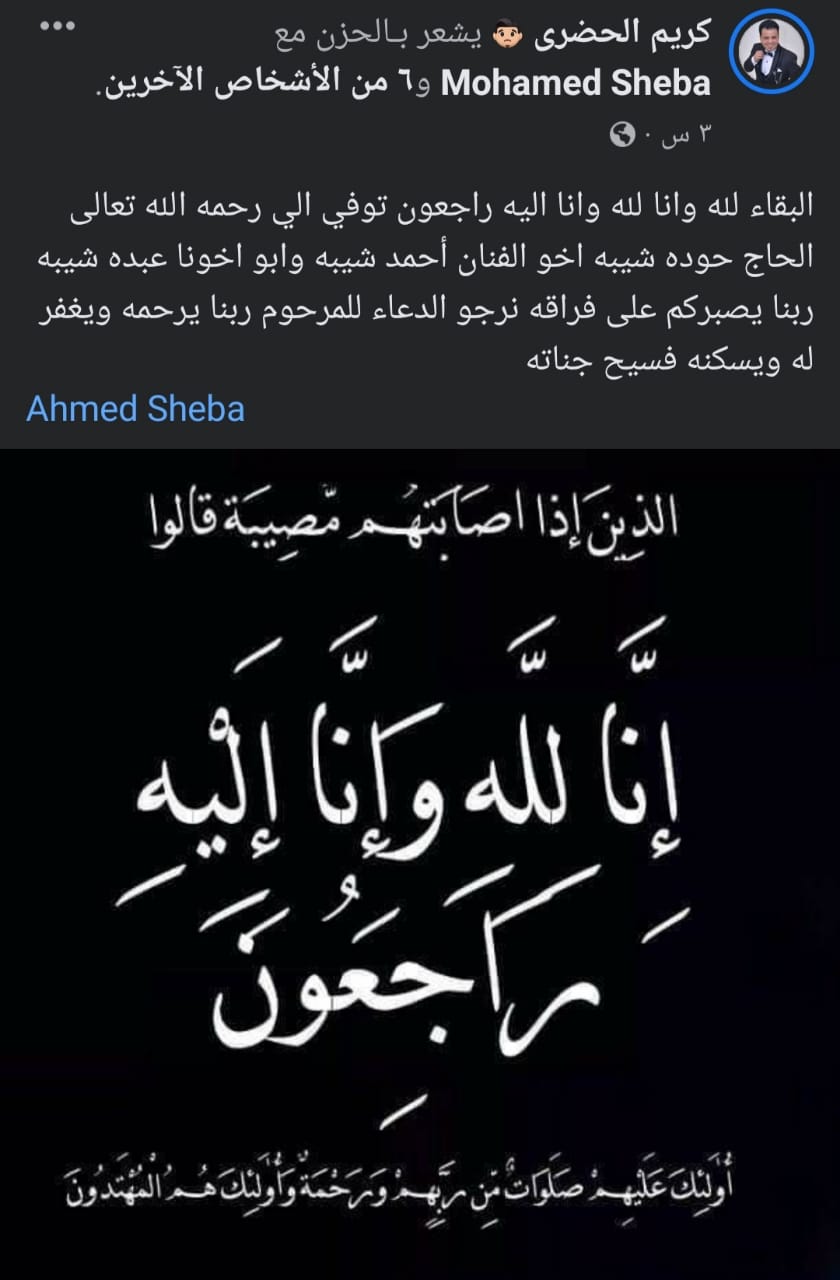 كريم الحضرى 🙍🏻‍♂️ يشعر بـالحزن مع
Mohamed Sheba و٦ من الأشخاص الآخرين.
٣ س ·
البقاء لله وانا لله وانا اليه راجعون توفي الي رحمه الله تعالى
الحاج حوده شيبه اخو الفنان أحمد شيبه وابو اخونا عبده شيبه
ربنا يصبركم على فراقه نرجو الدعاء للمرحوم ربنا يرحمه ويغفر
له ويسكنه فسيح جناته
Ahmed Sheba
الذِينَ إِذَا اصَابَتهُم مّصِيبَة قَالوا
إِنَّا لِلَّهِ وَإِنَّا إِلَيْهِ
رَاجِعُونَ
أُولَئِكَ عَلَيهِمْ صَلَوَاتٌ مِّن رَبِّهِمْ وَرَحْمَةٌ وَأُولَئِكَ هُمُ الْمُهْتَدُونَ